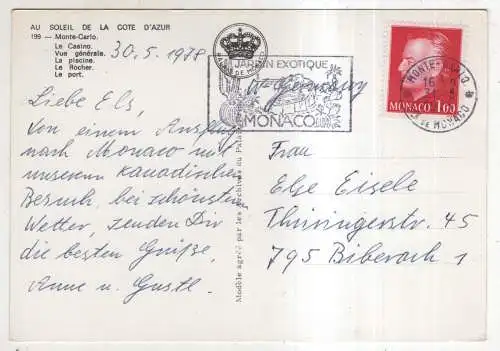 AU SOLEIL DE LA COTE D'AZUR
199 — Monte-Carlo.
Le Casino.
Vue générale.
La piscine.
Le Rocher.
Le port.
30.5.1978
Liebe Els,
von einem Ausflug
nach Monaco mit
unserem kanadischen
Besuch, bei schönstem
Wetter, senden Dir
die besten Grüße,
Anne u. Gustl.
Modèle agréé par les Archives du Palais
JARDIN EXOTIQUE
MONACO
W. Germany
MONACO 1,00
MONTE-CARLO
Pté DE MONACO
Frau
Else Eisele
Thüringerstr. 45
795 Biberach 1